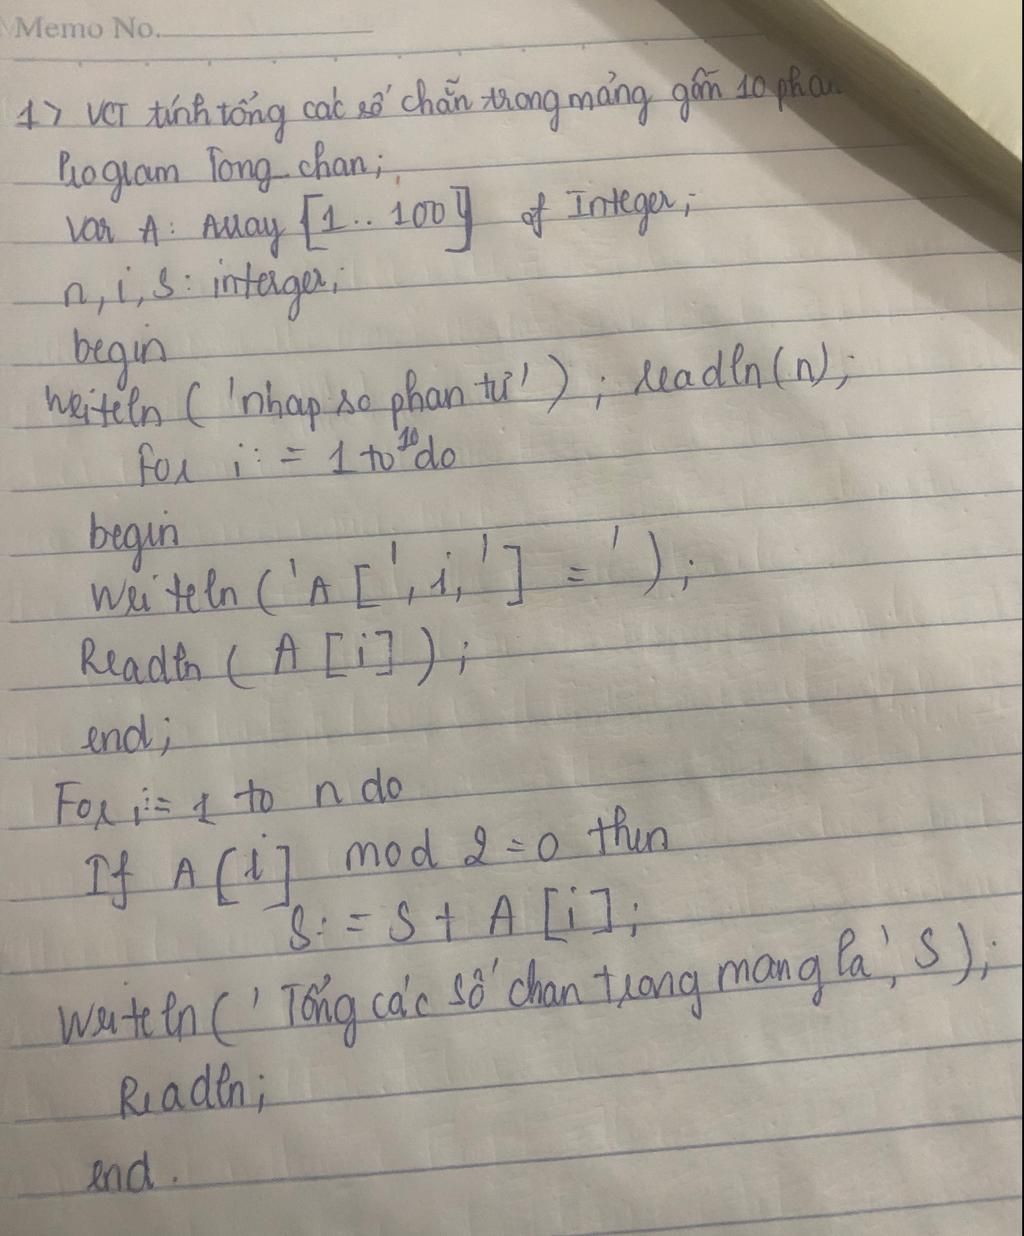 Memo No.
1> VCT tính tổng các số chẵn trong mảng gồm 10 phan
Program Tong_chan;
Var A: Array [1..100] of Integer;
n, i, S: interger;
begin
writeln ('nhap so phan tử'); readln(n);
for i:= 1 to 10 do
begin
writeln ('A[', i, '] = ');
Readln ( A [i] );
end;
For i:= 1 to n do
If A [i] mod 2 = 0 then
S:= S + A [i];
writeln (' Tổng các số chan trong mang la', S);
Readln;
end.